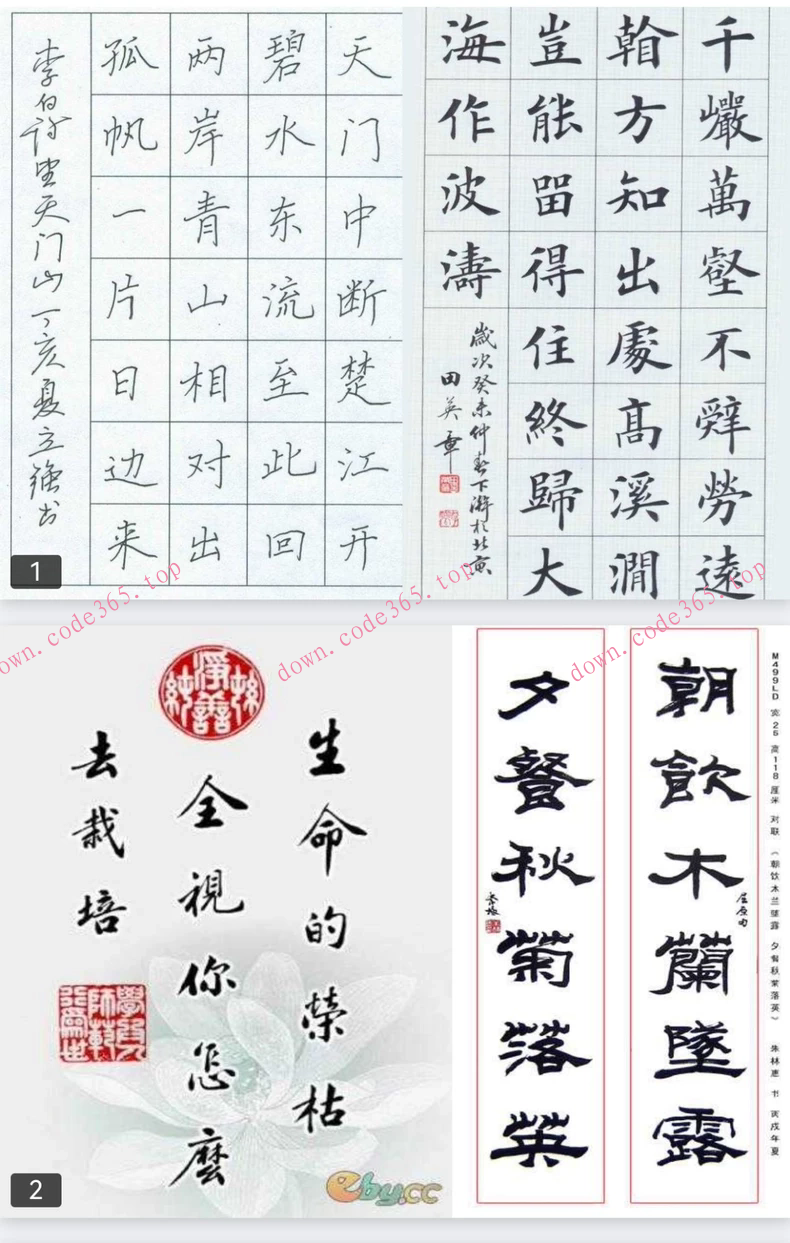 天门中断楚江开
碧水东流至此回
两岸青山相对出
孤帆一片日边来
李白诗望天门山丁亥夏立强书
千巖萬壑不辤勞遠
翰方知出處高溪澗
豈能畱得住終歸大
海作波濤
歲次癸未仲春下澣於北京
田英章
1
down.code365.top
down.code365.top
down.code365.top
生命的榮枯
全視你怎麼
去栽培
淨善
學為人師
行為世範
eby.cc
2
朝飲木蘭墜露
屈原句
夕餐秋菊落英
M499LD 宽25 高118 厘米 对联 《朝饮木兰坠露 夕餐秋菊落英》 朱林惠 书 丙戌年夏